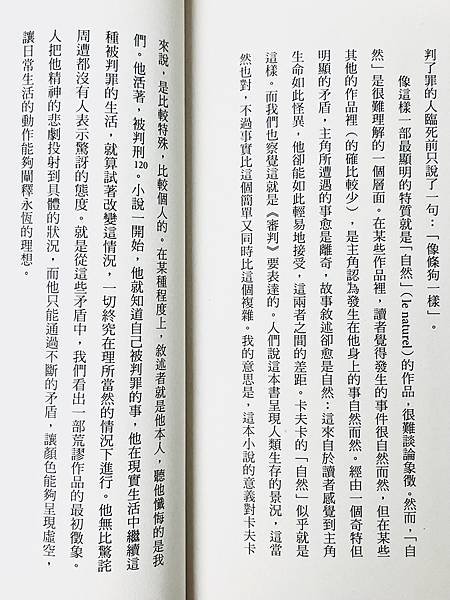 判了罪的人臨死前只說了一句：「像條狗一樣」。
像這樣一部最明顯的特質就是「自然」（le naturel）的作品，很難談論象徵。然而，「自
然」是很難理解的一個層面。在某些作品裡，讀者覺得發生的事件很自然而然，但在某些
其他的作品裡（的確比較少），是主角認為發生在他身上的事自然而然。經由一個奇特但
明顯的矛盾，主角所遭遇的事愈是離奇，故事敘述卻愈是自然：這來自於讀者感覺到主角
生命如此怪異，他卻能如此輕易地接受，這兩者之間的差距。卡夫卡的「自然」似乎就是
這樣。而我們也察覺這就是《審判》要表達的。人們說這本書呈現人類生存的景況，這當
然也對，不過事實比這個簡單又同時比這個複雜。我的意思是，這本小說的意義對卡夫卡
來說，是比較特殊，比較個人的。在某種程度上，敘述者就是他本人，聽他懺悔的是我
們。他活著，被判刑120。小說一開始，他就知道自己被判罪的事，他在現實生活中繼續這
種被判罪的生活，就算試著改變這情況，一切終究在理所當然的情況下進行。他無比驚詫
周遭都沒有人表示驚訝的態度。就是從這些矛盾中，我們看出一部荒謬作品的最初徵象。
人把他精神的悲劇投射到具體的狀況，而他只能通過不斷的矛盾，讓顏色能夠呈現虛空，
讓日常生活的動作能夠闡釋永恆的理想。